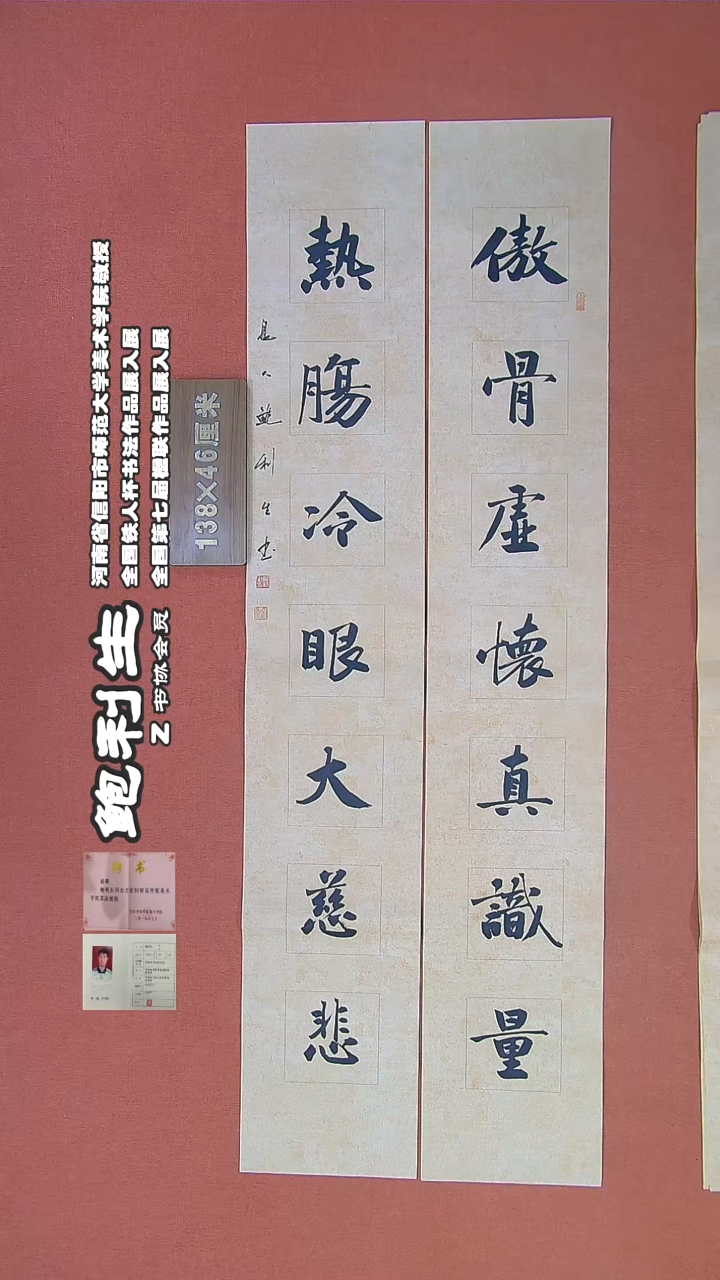 傲骨虚懷真識量
熱腸冷眼大慈悲
息人鮑利生书
138×46厘米
鲍利生
Z 书协会员
河南省信阳市师范大学美术学院教授
全国铁人杯书法作品展入展
全国第七届楹联作品展入展
聘书